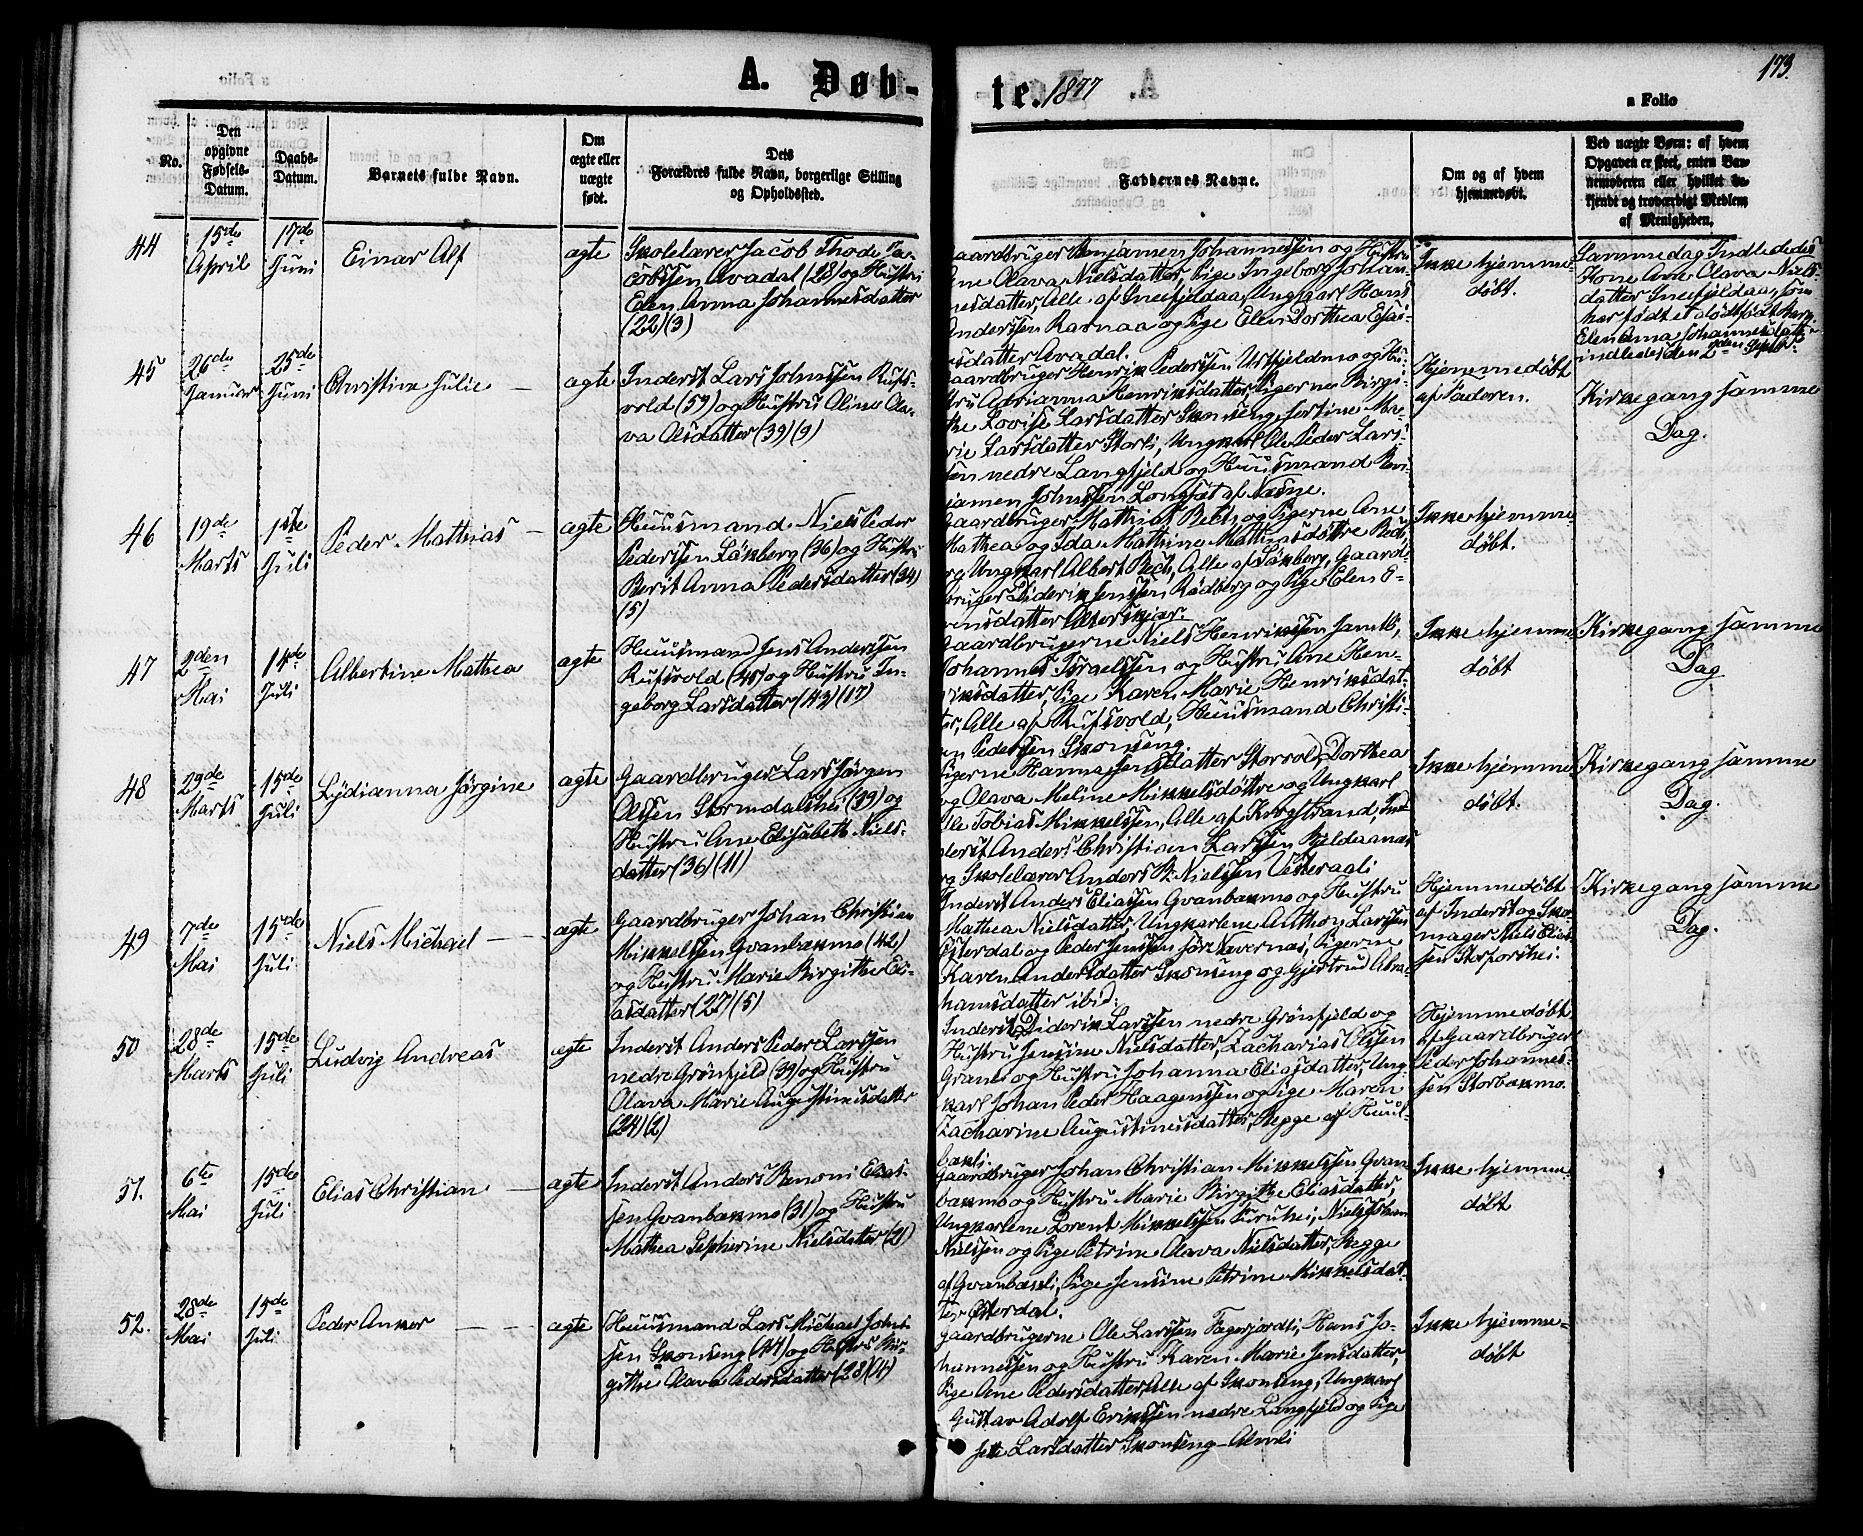 A. Døb-
te. 1877
173.
a Folio
No.
Den opgivne Fødsels-Datum.
Daabs-Datum.
Barnets fulde Navn.
Om ægte eller uægte født.
Dets Forældres fulde Navn, borgerlige Stilling og Opholdssted.
Faddernes Navne.
Om og af hvem hjemmedøbt.
Ved uægte Børn: af hvem Opgaven er skeet, enten Barnemoderen eller hvilket bekjendt og troværdigt Medlem af Menigheden.
44
15de April
17de Juni
Einar Alf
ægte
Skolelærer Jacob Thode Ja-
cobssen Avadal (28) og Hustru
Elen Anna Johannesdatter
(22) (3)
aardbruger Benjamen Johannessen og Hustru
ne Olava Nielsdatter, Pige Ingeborg Johan-
nesdatter, Alle af Snefjeldaa, Ungkarl Hans
Anderssen Rarnaa og Pige Elen Dorthea Esai-
asdatter Avadal.
Ikke hjemme-
døbt.
Samme dag Indlededes
Kone Ane Olava Niels-
datter Snefjeldaa, som
har født et dødfødt barn.
Elen Anna Johannesdatter
indledes den 2den Septbr.
45
26de Januar
25de Juni
Christine Julie
ægte
Inderst Lars Johnssen Rufs-
vold (59) og Hustru Oline Ola-
va Olsdatter (39) (9)
aardbruger Henrik Pederssen Urtfjeldmo og Hu-
stru Adrianna Henriksdatter, Pigerne Birgi-
the Lovise Larsdatter Skonseng, Jortine Ma-
rie Larsdatter Storli, Ungkarl Ole Peder Lars-
sen nedre Langfjeld og Huusmand Ben-
jamen Johnssen Lonsæt af Næsne.
Hjemmedøbt
af Faderen.
Kirkegang samme
Dag.
46
19de Marts
1ste Juli
Peder Mathias
ægte
Huusmand Niels Peder
Pederssen Sånberg (36) og Hustru
Berit Anna Pedersdatter (34)
(5)
Gaardbruger Mathias Bech, og Pigerne Ane
Mathea og Ida Mathine Mathiasdøttre Bech,
og Ungkarl Albert Bech, Alle af Sånberg, Gaard-
bruger Diderik Jenssen Rødberg og Pige Elen E-
rensdatter Alterskjær.
Ikke hjemme-
døbt.
47
2den Mai
14de Juli
Albertine Mathea
ægte
Huusmand Jens Anderssen
Rufsvold (45) og Hustru In-
geborg Larsdatter (43) (17)
Gaardbrugerne Niels Henrikssen Jamtli,
Johannes Israelssen og Hustru Ane Hen-
riksdatter, Pige Karen Marie Henriksdat-
ter, Alle af Rufsvold, Huusmand Christi-
en Pederssen Skonseng.
Ikke hjemme
døbt
Kirkegang samme
Dag
48
29de Marts
15de Juli
Lydianna Jørgine
ægte
Gaardbruger Lars Jørgen
Olssen Stormdalshei (39) og
Hustru Ane Elisabeth Niels-
datter (36) (11)
Pigerne Hanna Jensdatter Storvold, Dorthea
og Olava Meline Mikkelsdøttre og Ungkarl
Ole Tobias Mikkelssen, Alle af Krogstrand, In-
derst Anders Christian Larssen Bjeldaanæs
og Skolelærer Anders B. Nielssen Vesteraali
Ikke hjemme-
døbt.
Kirkegang samme
Dag.
49
7de Mai
15de Juli
Niels Michael
ægte
Gaardbruger Johan Christian
Mikkelssen Gvanbækmo (42)
og Hustru Marie Birgithe Eli-
asdatter (27) (5)
Inderst Anders Eliassen Gvanbækmo og Hustru
Mathea Nielsdatter, Ungkarlene Anthon Larssen
Østerdal og Peder Jenssen Jør Nævernæs, Pigerne
Karen Andersdatter Skonseng og Gjertrud Abra-
hamsdatter ibid.
Hjemmedøbt
af Inderst og Sko-
mager Niels Elias-
sen Storforshei.
Kirkegang samme
Dag.
50
28de Marts
15de Juli
Ludvig Andreas
ægte
Inderst Anders Peder Larssen
nedre Grønfjeld (39) og Hustru
Olava Marie Augustinusdatter
(24) (2)
Inderst Diderik Larssen nedre Grønfjeld og
Hustru Jensine Nielsdatter, Zacharias Olssen
Granli og Hustru Johanna Eliasdatter, Ung-
karl Johan Peder Haagenssen og Pige Maren
Zacharine Augustinusdatter, Begge af Huul-
bækli.
Hjemmedøbt
af Gaardbruger
Peder Johannes-
sen Storbækmo.
51.
6te Mai
15de Juli
Elias Christian
ægte
Inderst Anders Benoni Elias-
sen Gvanbækmo (31) og Hustru
Mathea Sepherine Nielsdatter (21)
Gaardbruger Johan Christian Mikkelssen Gvan-
bækmo og Hustru Marie Birgithe Eliasdatter,
Ungkarlene Lorent Mikkelssen Biruhei, Niels Johan
Nielssen og Pige Petrine Olava Nielsdatter, Begge
af Gvanbækli, Pige Jensine Petrine Mikkelsdat-
ter Østerdal.
Ikke hjemme
døbt
52.
28de Mai
15de Juli
Peder Anker
ægte
Huusmand Lars Michael Johns-
sen Skonseng (44) og Hustru Bir-
githe Olava Pedersdatter (28) (4)
Gaardbrugerne Ole Larssen Fagerjordli, Hans Jo-
hannessen og Hustru Karen Marie Jensdatter,
Pige Ane Pedersdatter, Alle af Skonseng, Ungkarl
Gustav Adolf Erikssen nedre Langfjeld og Pige
Jette Larsdatter Skonseng-Almli
Ikke hjemme-
døbt